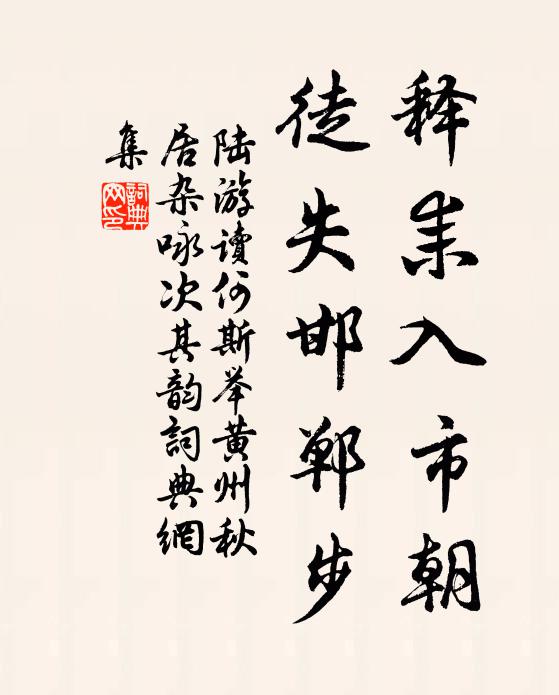 释耒入市朝
徒失邯郸步
陆游讀何斯举黄州秋
居杂咏次其韵詞典網
集
詞典
网印